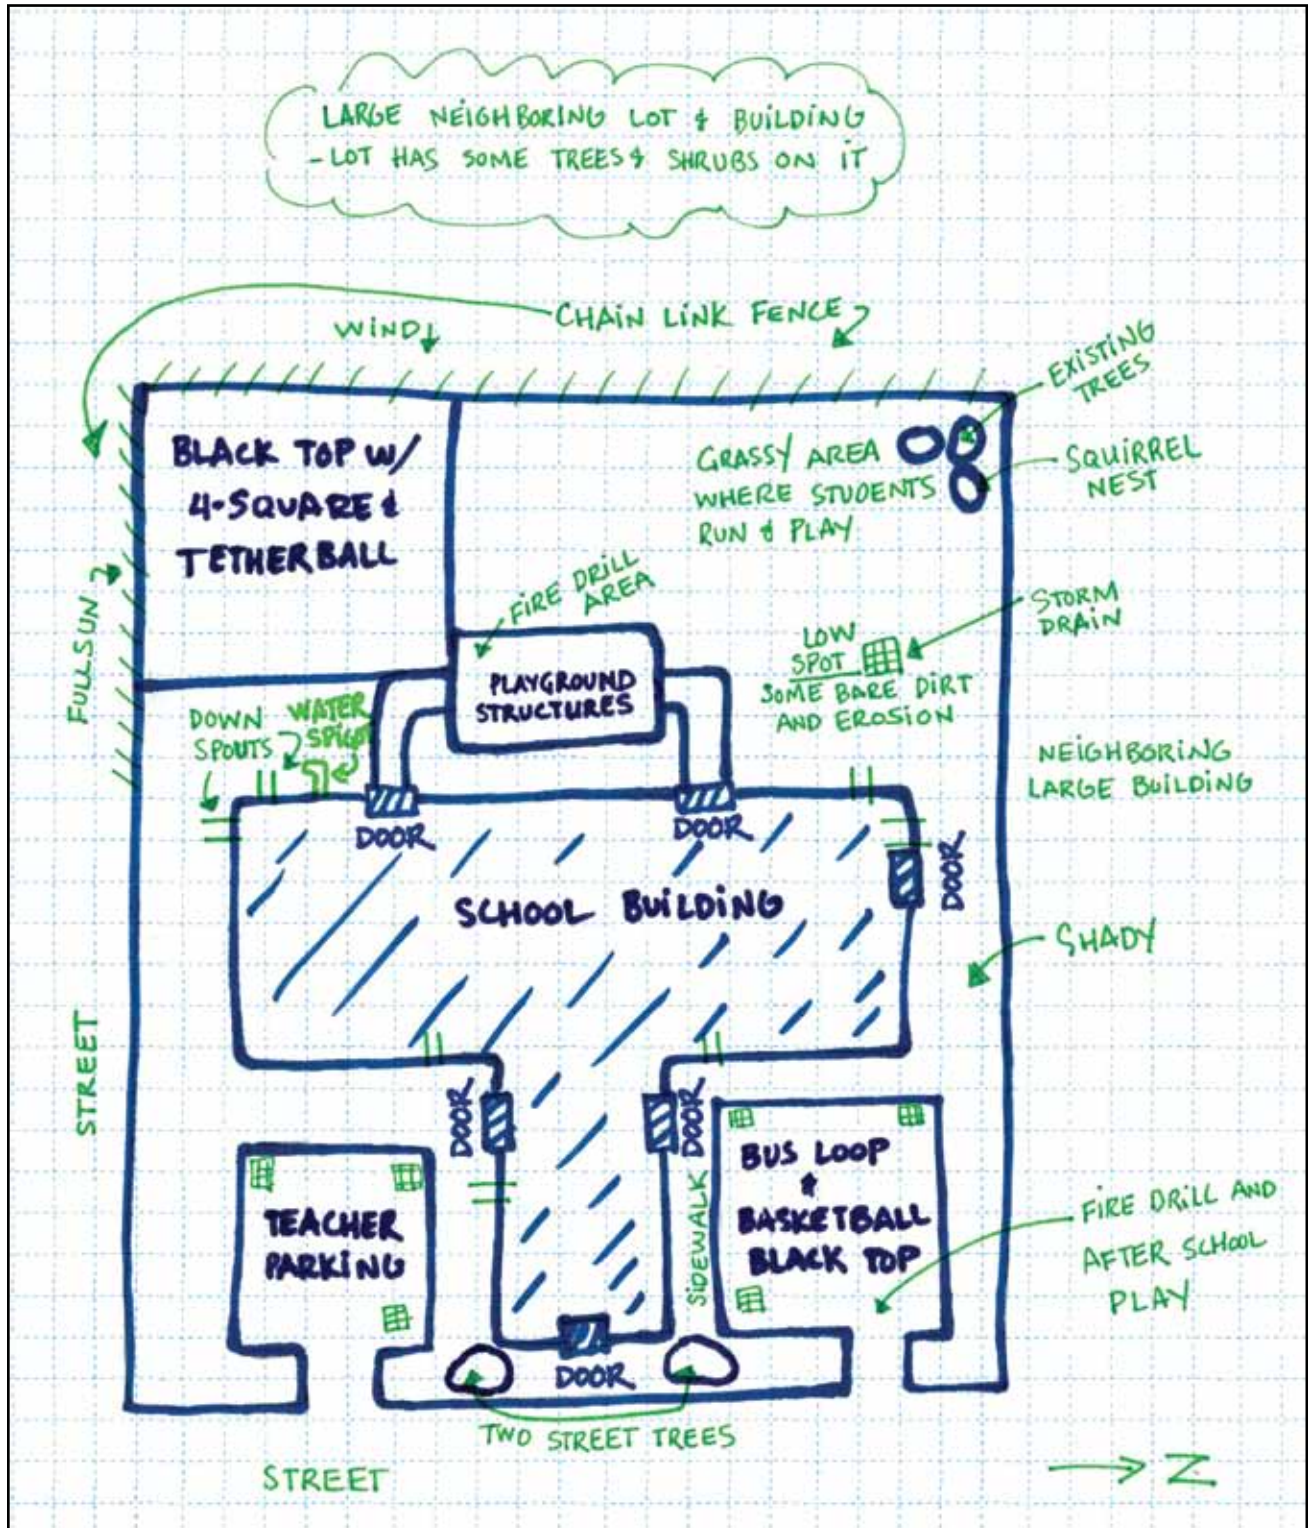 LARGE NEIGHBORING LOT & BUILDING
- LOT HAS SOME TREES & SHRUBS ON IT
CHAIN LINK FENCE
WIND
EXISTING
TREES
BLACK TOP W/
4-SQUARE &
TETHERBALL
GRASSY AREA
WHERE STUDENTS
RUN & PLAY
SQUIRREL
NEST
FULL SUN
FIRE DRILL
AREA
STORM
DRAIN
LOW
SPOT
SOME BARE DIRT
AND EROSION
PLAYGROUND
STRUCTURES
DOWN
SPOUTS
WATER
SPIGOT
NEIGHBORING
LARGE BUILDING
DOOR
DOOR
DOOR
SCHOOL BUILDING
SHADY
STREET
DOOR
DOOR
SIDEWALK
BUS LOOP
&
BASKETBALL
BLACK TOP
TEACHER
PARKING
FIRE DRILL AND
AFTER SCHOOL
PLAY
DOOR
TWO STREET TREES
STREET
Z